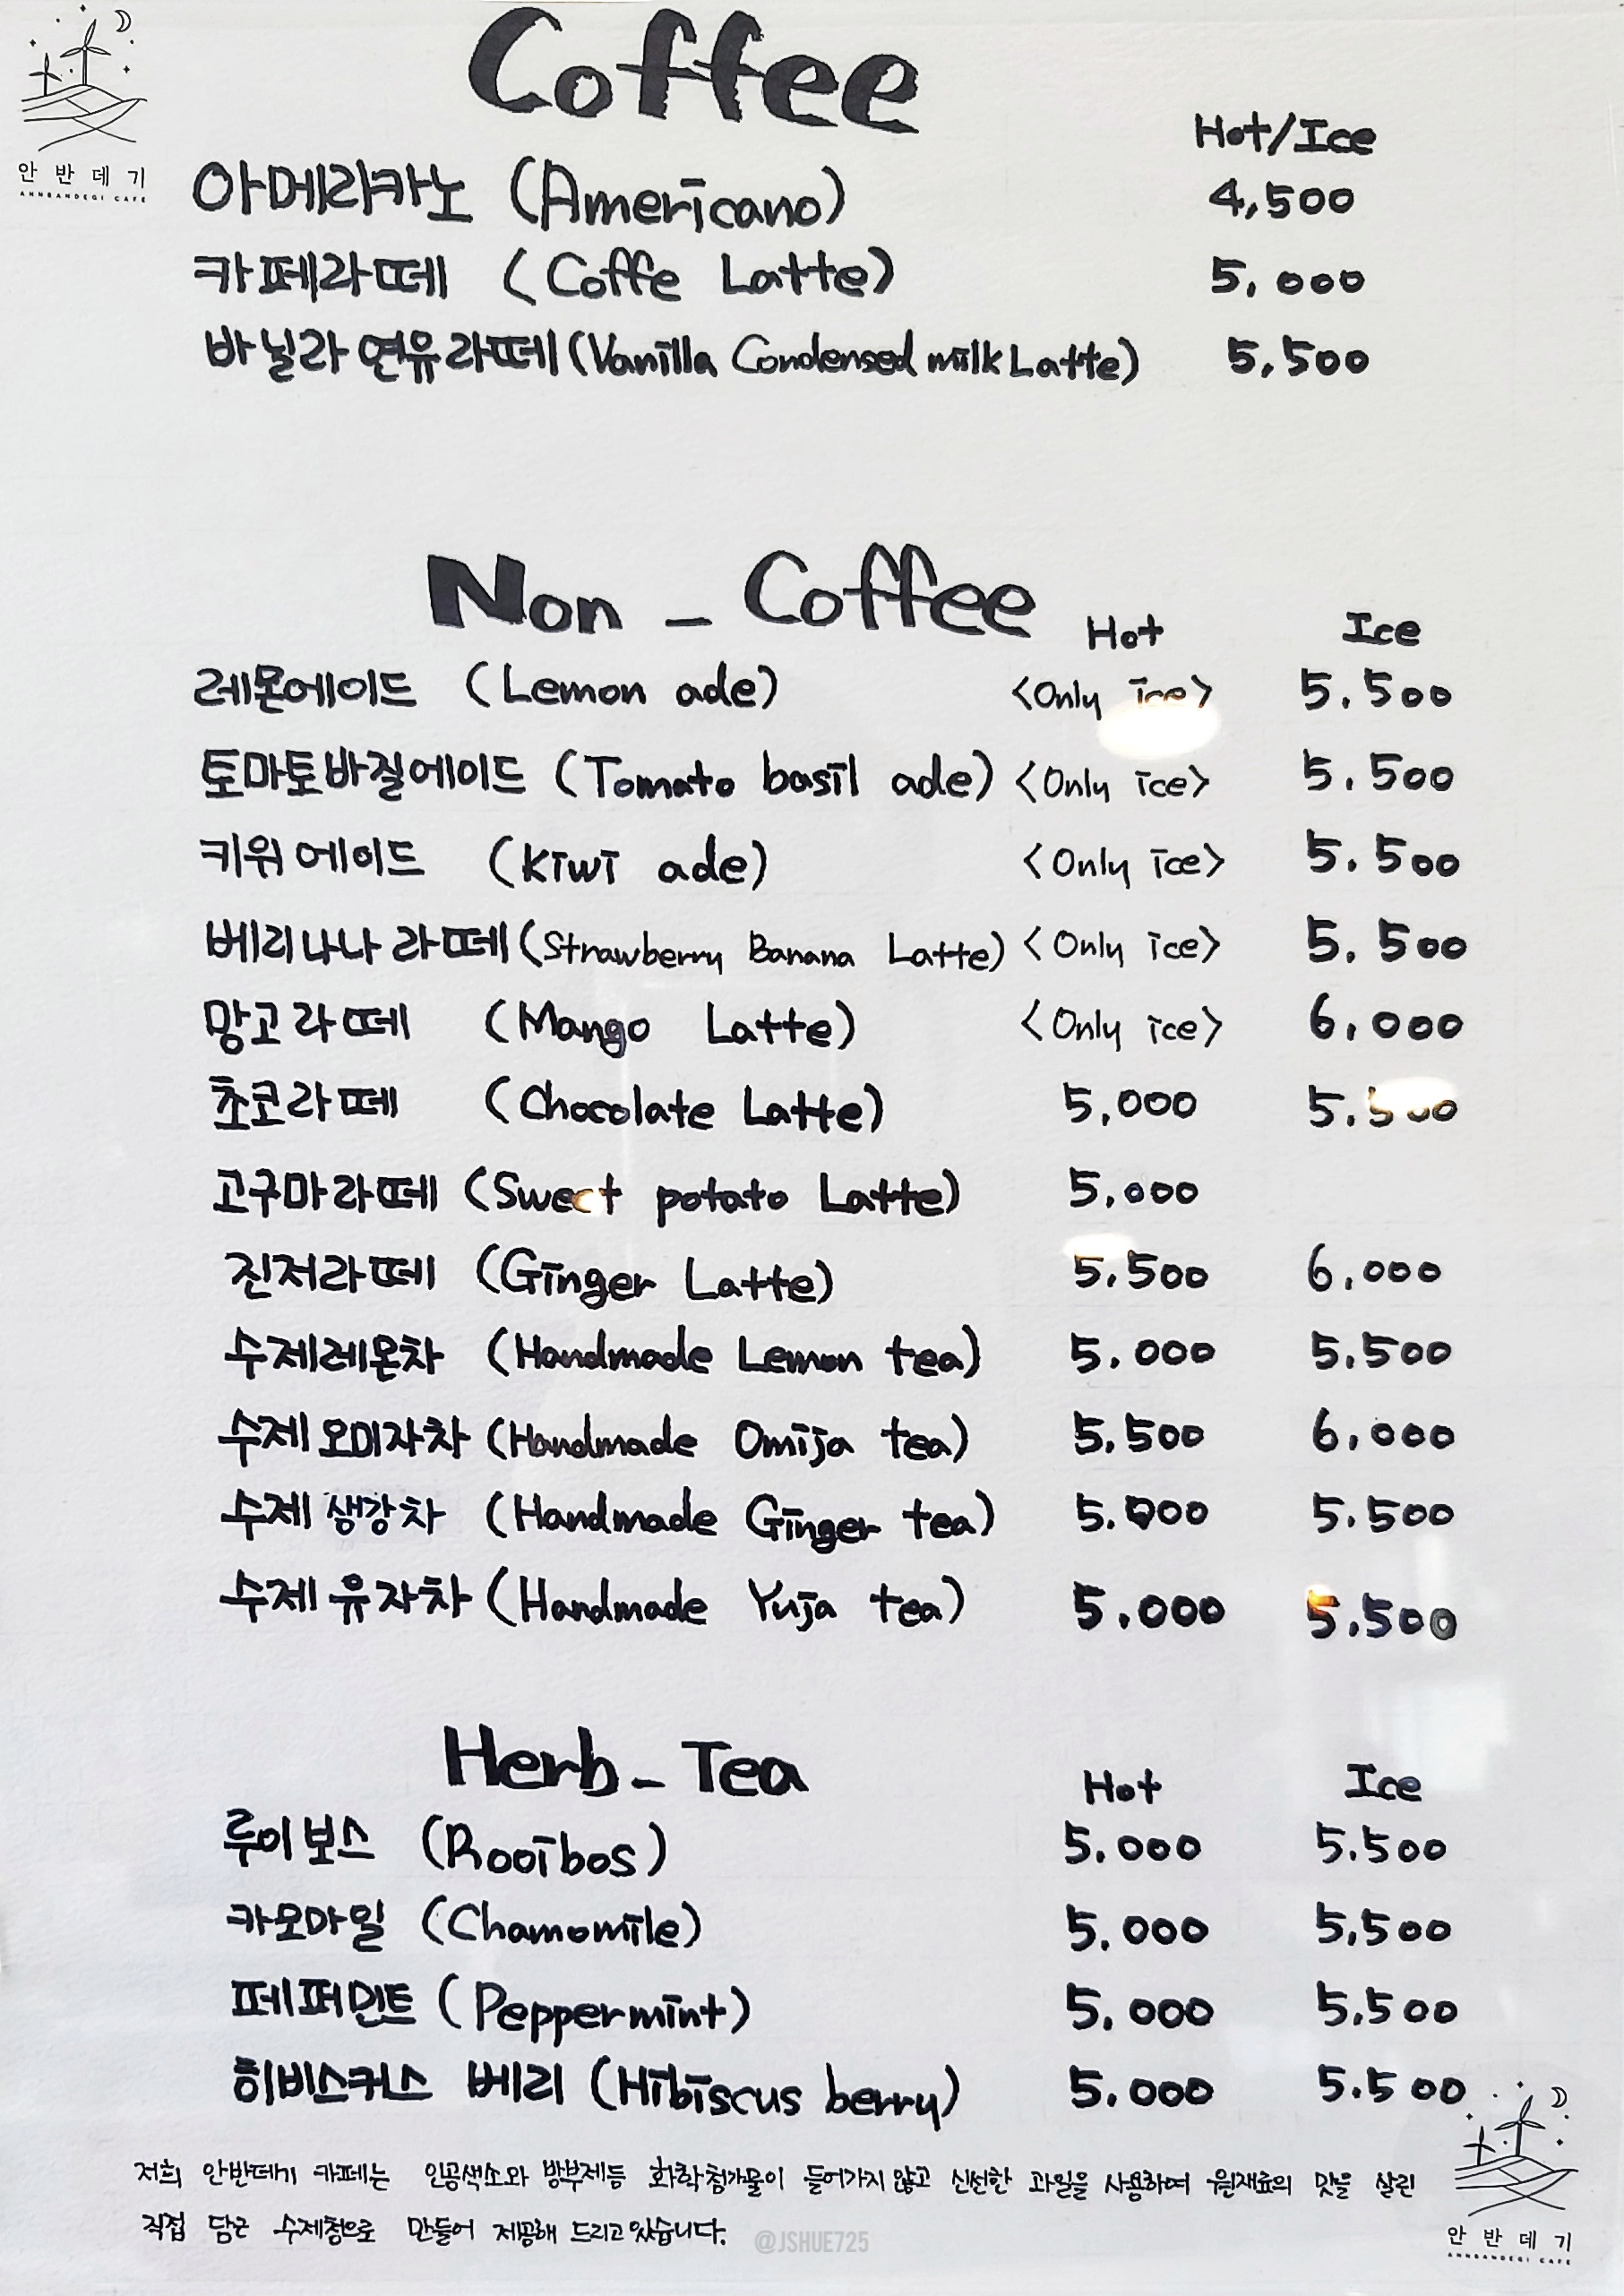 안 반 데 기
ANNBANDEGI CAFE
Coffee
Hot/Ice
아메리카노 (Americano) 4,500
카페라떼 (Coffe Latte) 5,000
바닐라 연유라떼 (Vanilla Condensed milk Latte) 5,500
Non - Coffee Hot Ice
레몬에이드 (Lemon ade) <Only ice> 5.500
토마토바질에이드 (Tomato basil ade) <Only ice> 5.500
키위에이드 (Kiwi ade) <Only ice> 5.500
베리나나 라떼 (Strawberry Banana Latte) <Only ice> 5.500
망고라떼 (Mango Latte) <Only ice> 6,000
초코라떼 (Chocolate Latte) 5,000 5.500
고구마라떼 (Sweet potato Latte) 5,000
진저라떼 (Ginger Latte) 5.500 6,000
수제레몬차 (Handmade Lemon tea) 5.000 5.500
수제 오미자차 (Handmade Omija tea) 5.500 6,000
수제 생강차 (Handmade Ginger tea) 5.000 5.500
수제 유자차 (Handmade Yuja tea) 5.000 5.500
Herb - Tea Hot Ice
루이보스 (Rooibos) 5.000 5.500
카모마일 (Chamomile) 5.000 5,500
페퍼민트 (Peppermint) 5.000 5,500
히비스커스 베리 (Hibiscus berry) 5.000 5.500
저희 안반데기 카페는 인공색소와 방부제등 화학첨가물이 들어가지 않고 신선한 과일을 사용하여 원재료의 맛을 살린
직접 담근 수제청으로 만들어 제공해 드리고 있습니다.
@JSHUE725
안 반 데 기
ANNBANDEGI CAFE